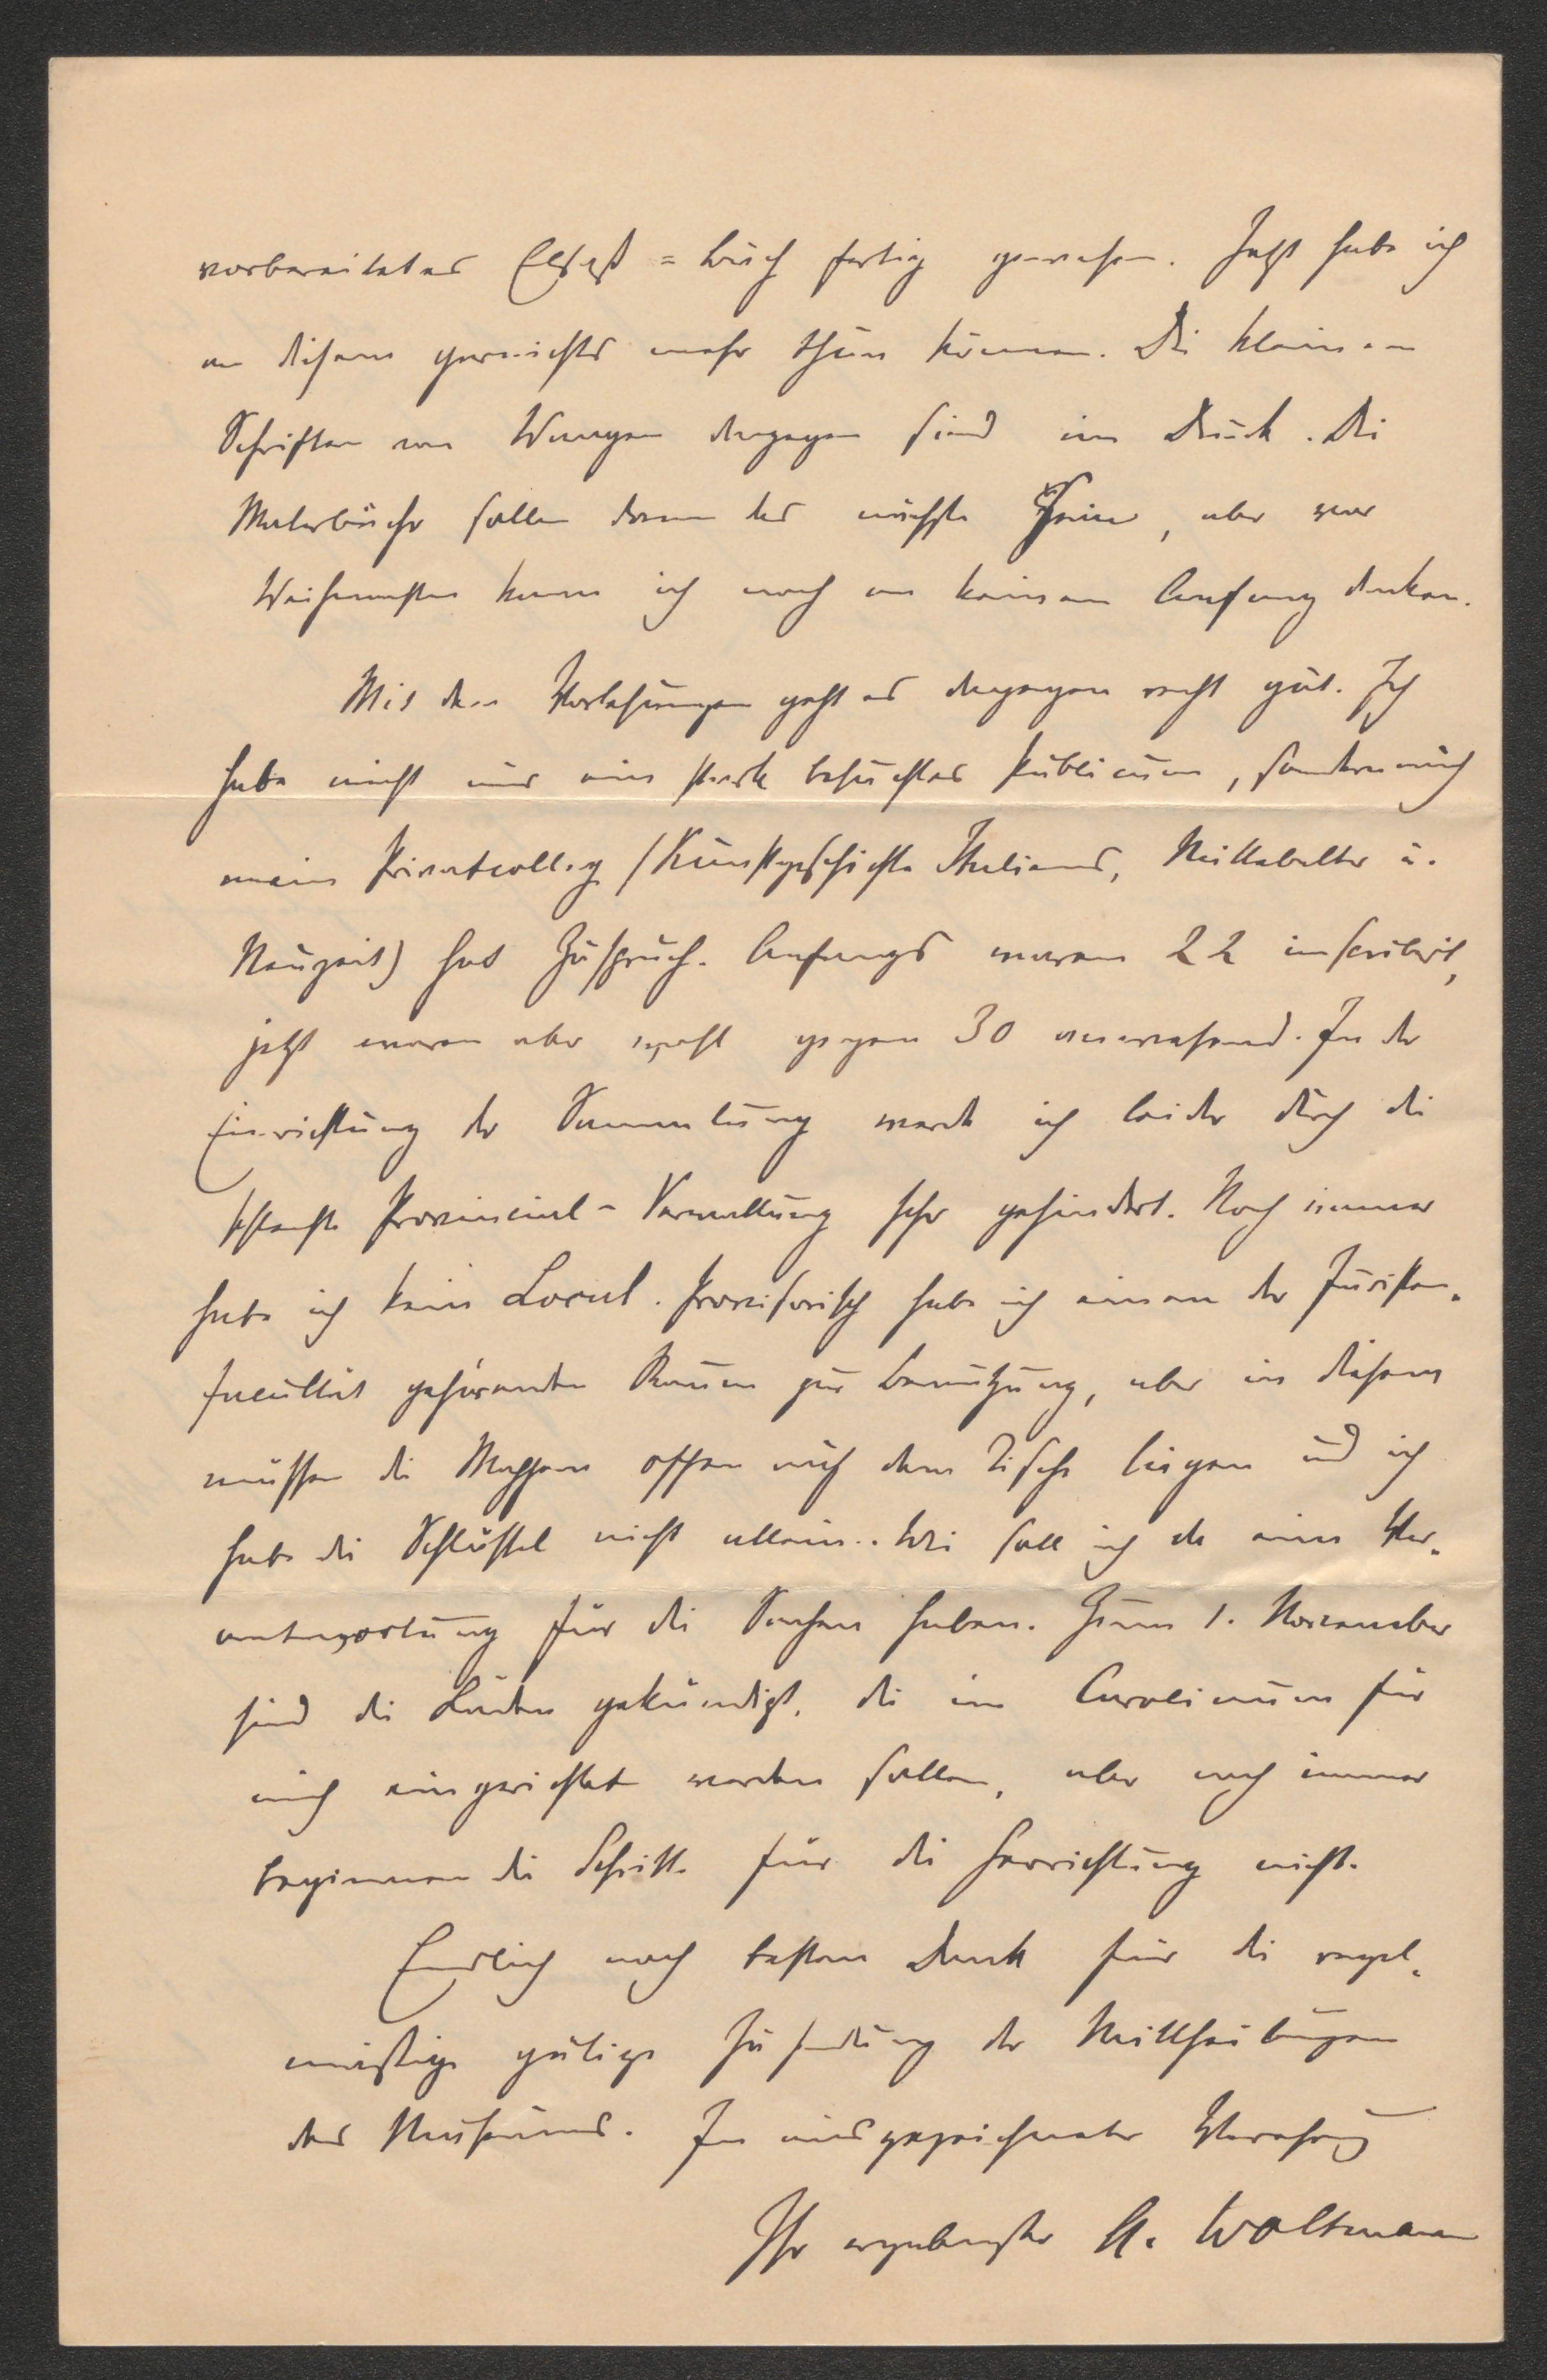 vorbereitetes Elsaß=Buch fertig gewesen. Jetzt habe ich
an diesem garnichts mehr thun können. Die kleinen
Schriften von Waagen dagegen sind im Druck. Die
Malerbücher sollen dann das nächste sein, aber vor
Weihnachten kann ich noch an keinen Anfang denken.
Mit den Vorlesungen geht es dagegen recht gut. Ich
habe nicht nur ein stark besuchtes Publicum, sondern auch
mein Privatcolleg (Kunstgeschichte Italiens, Mittelalter u.
Neuzeit) hat Zuspruch. Anfangs waren 22 inscribirt,
jetzt waren aber wohl gegen 30 anwesend. In der
Einrichtung der Sammlung werde ich leider durch die
schlechte Provincial-Verwaltung sehr gehindert. Noch immer
habe ich kein Local. Provisorisch habe ich einen der Juristen-
facultät gehörenden Raum zur Benutzung, aber in diesem
müssen die Mappen offen auf dem Tische liegen und ich
habe die Schlüssel nicht allein. Wie soll ich da eine Ver-
antwortung für die Sachen haben. Zum 1. November
sind die Läden gekündigt, die im Carolinum für
mich eingerichtet werden sollen, aber noch immer
beginnen die Schritte für die Herrichtung nicht.
Endlich noch besten Dank für die regel-
mäßige gütige Zusendung der Mittheilungen
des Museums. In ausgezeichneter Verehrung
Ihr ergebenster A. Woltmann